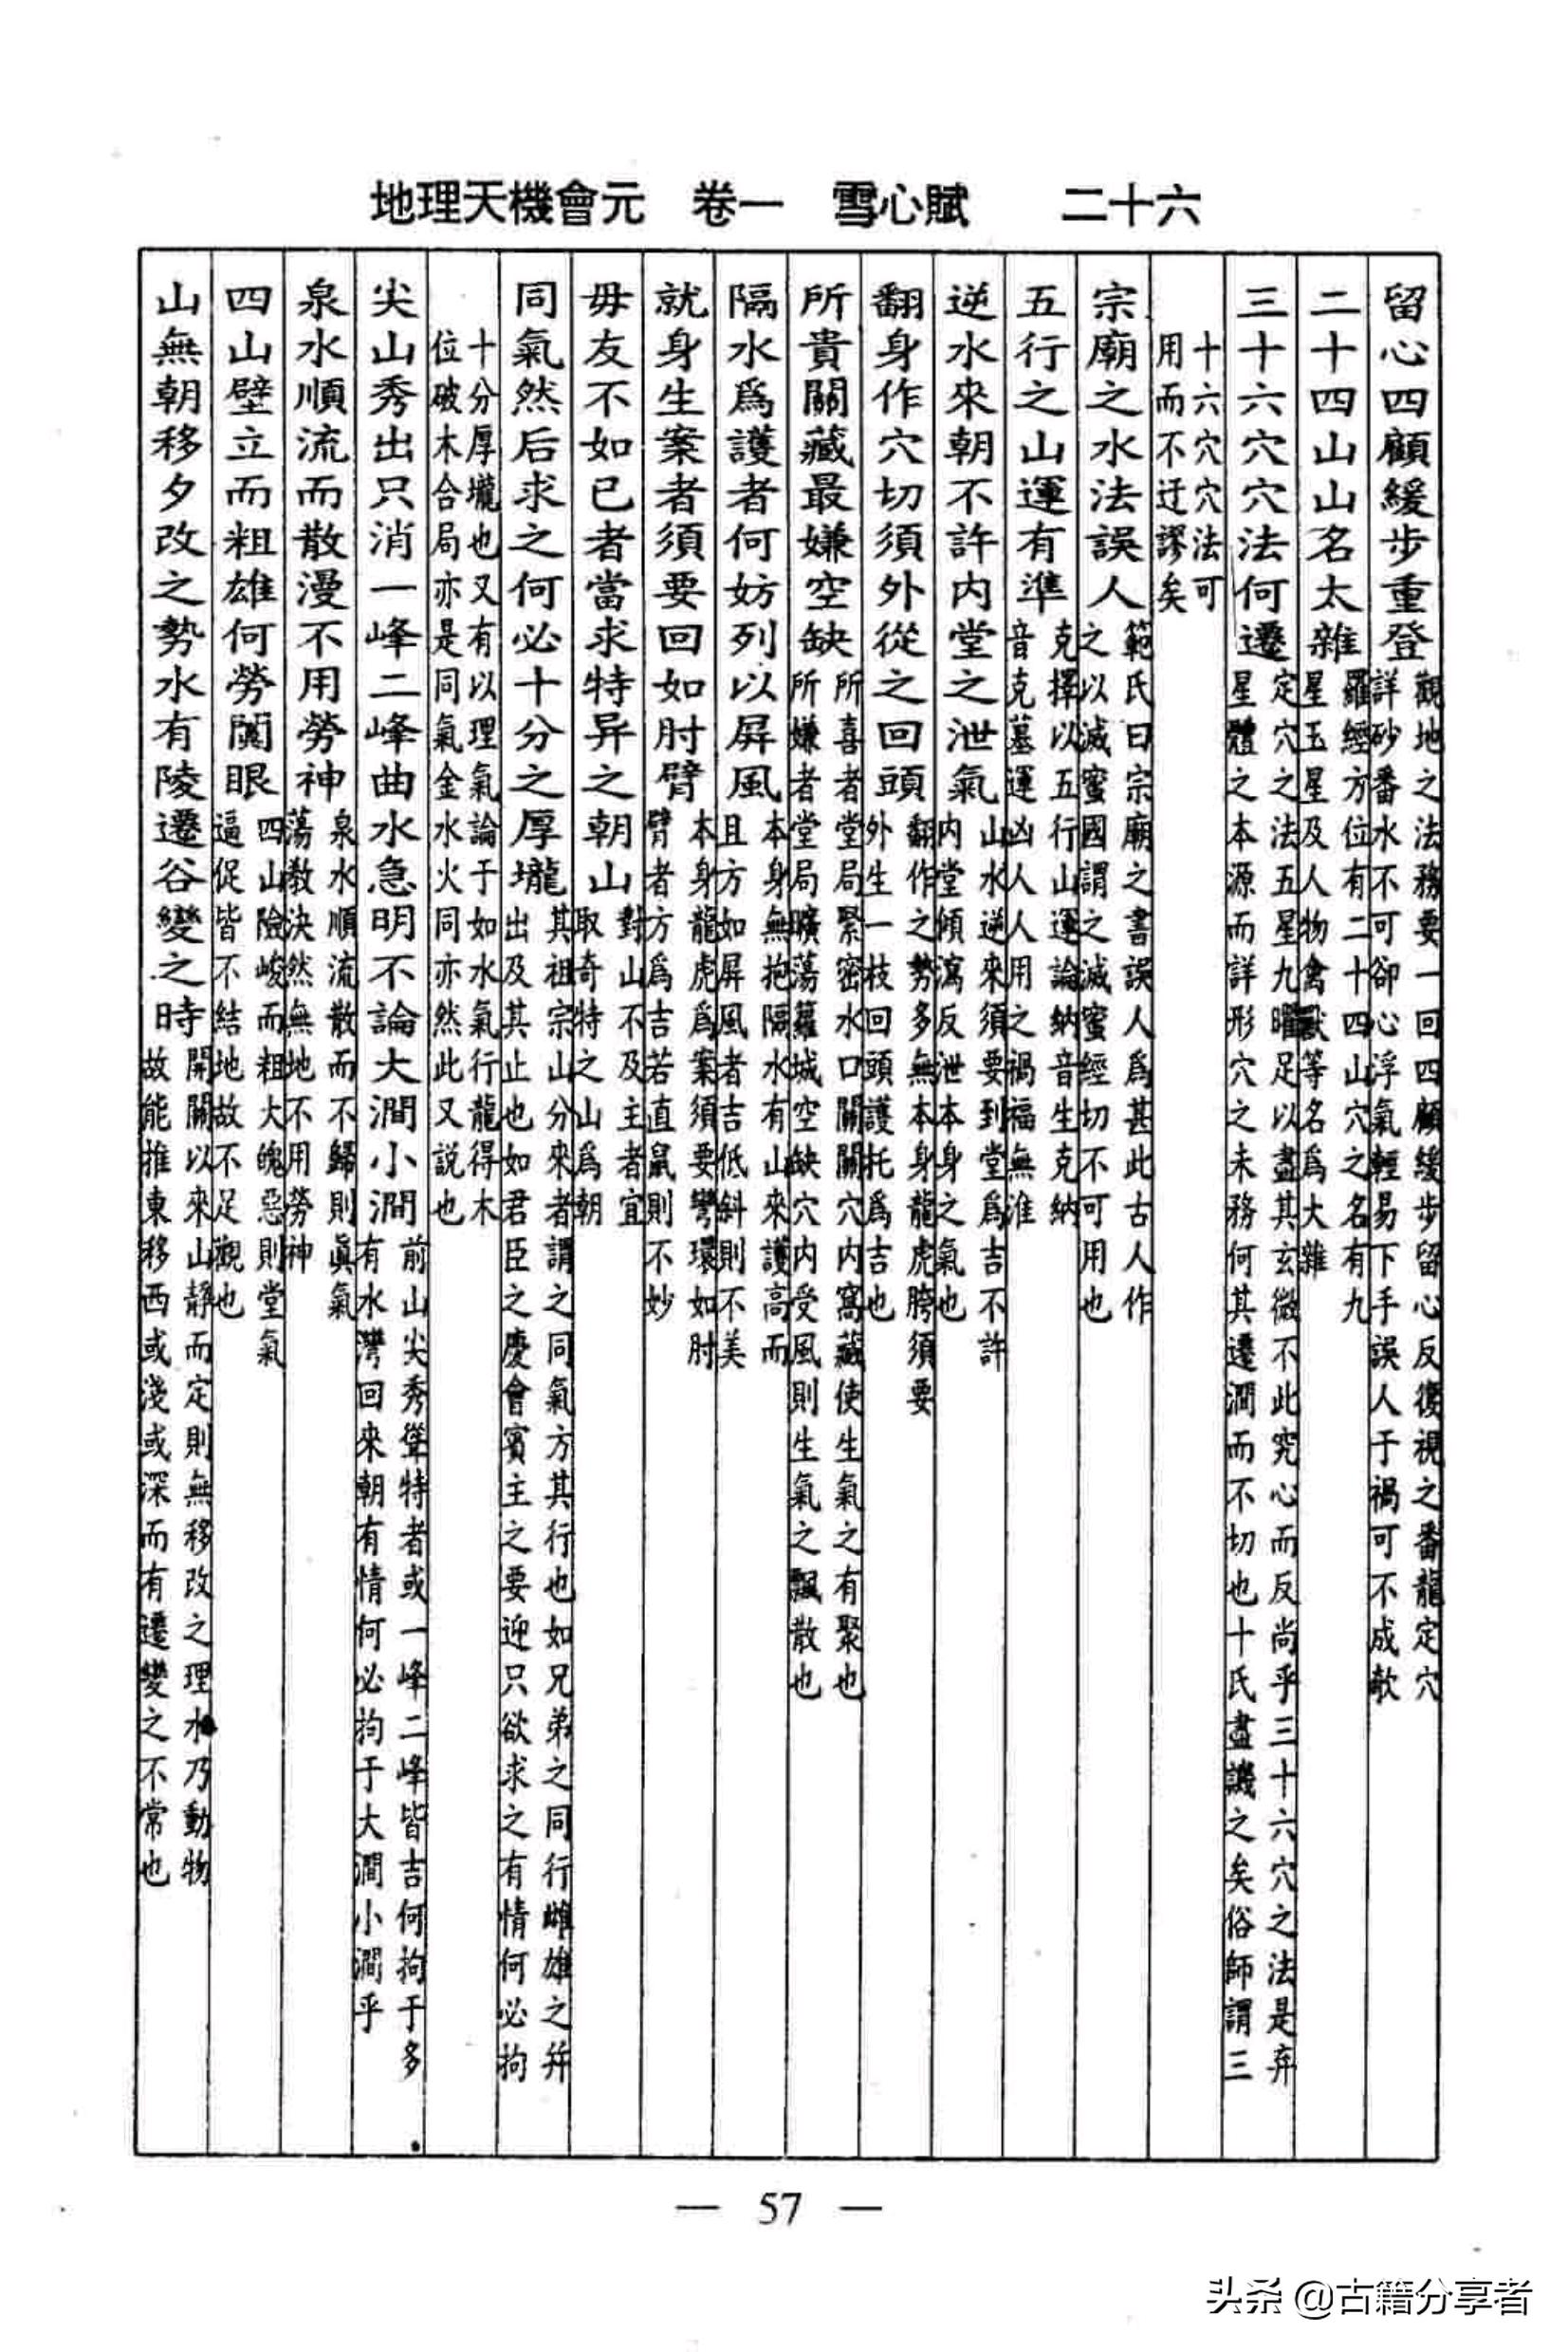 地理天機會元 卷一 雪心賦 二十六
留心四顧緩步重登 觀地之法務要一回四顧緩步留心反復視之番龍定穴
詳砂番水不可卻心浮氣輕易下手誤人于禍可不成歟
二十四山山名太雜 羅經方位有二十四山穴之名有九
星玉星星及人物禽獸等名爲大雜
三十六穴穴法何遷 定穴之法五星九曜足以盡其玄微不此究心而反尚乎三十六穴之法是弃
星體之本源而詳形穴之末務何其遷澗而不切也十氏盡譏之矣俗師謂三
十六穴穴法可
用而不迂謬矣
宗廟之水法誤人 範氏曰宗廟之書誤人爲甚此古人作
之以滅蜜國謂之滅蜜經切不可用也
五行之山運有準 克擇以五行山運論納音生克納
音克墓運凶人人用之禍福無准
逆水來朝不許内堂之泄氣 山水逆來須要到堂爲吉不許
内堂傾瀉反泄本身之氣也
翻身作穴切須外從之回頭 翻作之勢多無本身龍虎胯須要
外生一枝回頭護托爲吉也
所貴關藏最嫌空缺 所喜者堂局緊密水口關關穴内窩藏使生氣之有聚也
所嫌者堂局曠蕩羅城空缺穴内受風則生氣之飄散也
隔水爲護者何妨列以屏風 本身無抱隔水有山來護高而
且方如屏風者吉低斜則不美
就身生案者須要回如肘臂 本身龍虎爲案須要彎環如肘
臂者方爲吉若直鼠則不妙
毋友不如已者當求特异之朝山 對山不及主者宜
取奇特之山爲朝
同氣然后求之何必十分之厚壠 其祖宗山分來者謂之同氣方其行也如兄弟之同行雌雄之幷
出及其止也如君臣之慶會賓主之要迎只欲求之有情何必拘
十分厚壠也又有以理氣論于如水氣行龍得木
位破木合局亦是同氣金水火同亦然此又説也
尖山秀出只消一峰二峰曲水急明不論大澗小澗 前山尖秀聳特者或一峰二峰皆吉何拘于多
有水灣回來朝有情何必拘于大澗小澗乎
泉水順流而散漫不用勞神 泉水順流散而不歸則眞氣
蕩教決然無地不用勞神
四山壁立而粗雄何勞闃眼 四山險峻而粗大醜惡則堂氣
逼促皆不結地故不足觀也
山無朝移夕改之勢水有陵遷谷變之時 開關以來山靜而定則無移改之理水乃動物
故能推東移西或淺或深而有遷變之不常也
— 57 —
头条 @古籍分享者